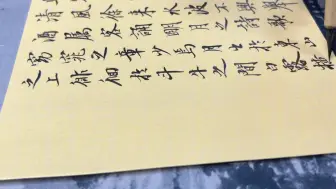 清風徐來水波不興
酒屬客誦明月之詩歌
窈窕之章少焉月出於東山
之上徘徊於斗牛之間白露橫